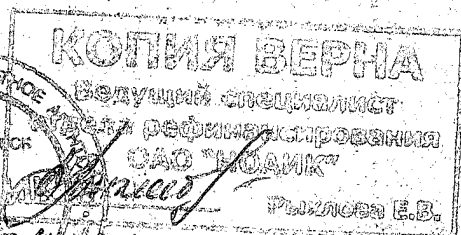 КОПИЯ ВЕРНА
Ведущий специалист
отдела рефинансирования
ОАО "НОАИК"
Рыхлова Е.В.